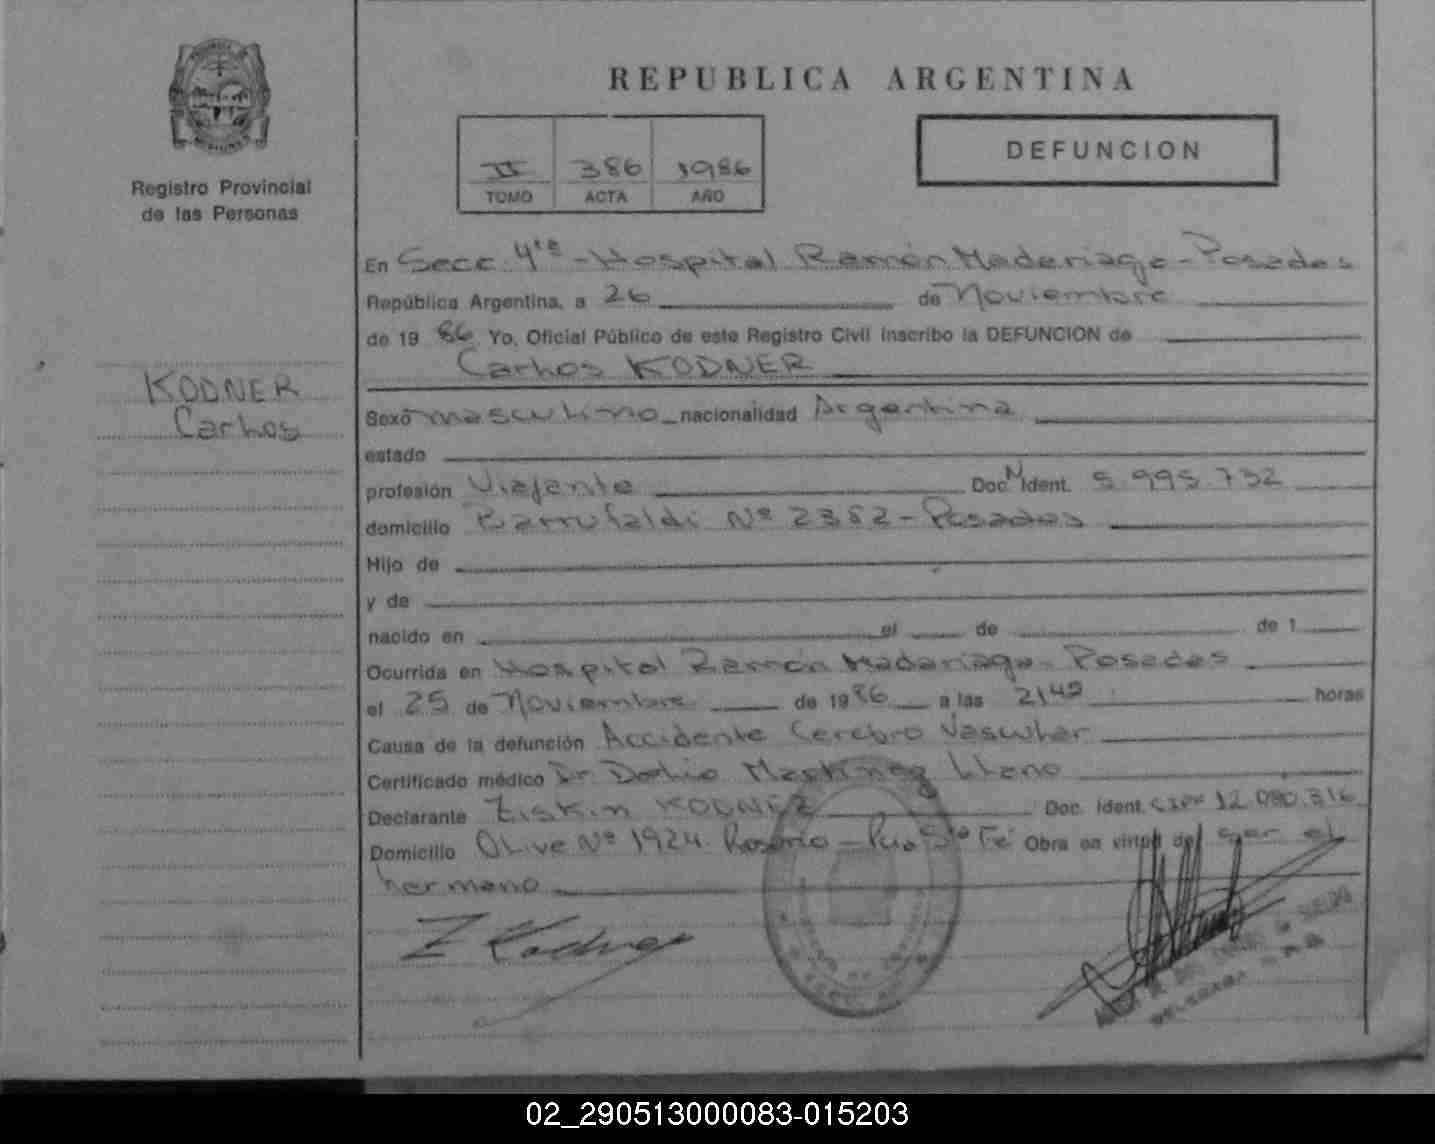 REPUBLICA ARGENTINA
Registro Provincial
de las Personas
II 386 1986
TOMO ACTA AÑO
DEFUNCION
En Secc. 4ta - Hospital Ramón Madariaga - Posadas
República Argentina, a 26 de Noviembre
de 19 86 Yo, Oficial Público de este Registro Civil inscribo la DEFUNCION de
Carlos KODNER
KODNER
Carlos
Sexo masculino nacionalidad Argentina
estado
profesión Viajante Doc. N Ident. 5.995.732
domicilio Barrufaldi Nº 2382 - Posadas
Hijo de
y de
nacido en el de de 1
Ocurrida en Hospital Ramón Madariaga - Posadas
el 25 de Noviembre de 19 86 a las 21,45 horas
Causa de la defunción Accidente Cerebro Vascular
Certificado médico Dr. Darío Martínez Llano
Declarante Ziskin KODNER Doc. Ident. 12.090.316
Domicilio Olive Nº 1924. Rosario - Pcia Sta Fé Obra en virtud de ser el
hermano
Z Kodner
02_290513000083-015203